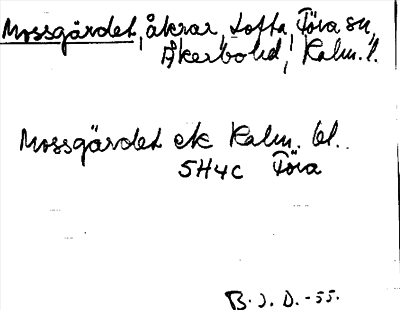 Mossgärdet, åkrar, Tofta, Föra sn,
Åkerbo hd, Kalm. l.
Mossgärdet ek Kalm. bl.
5H4c Föra
B. J. D. -55.